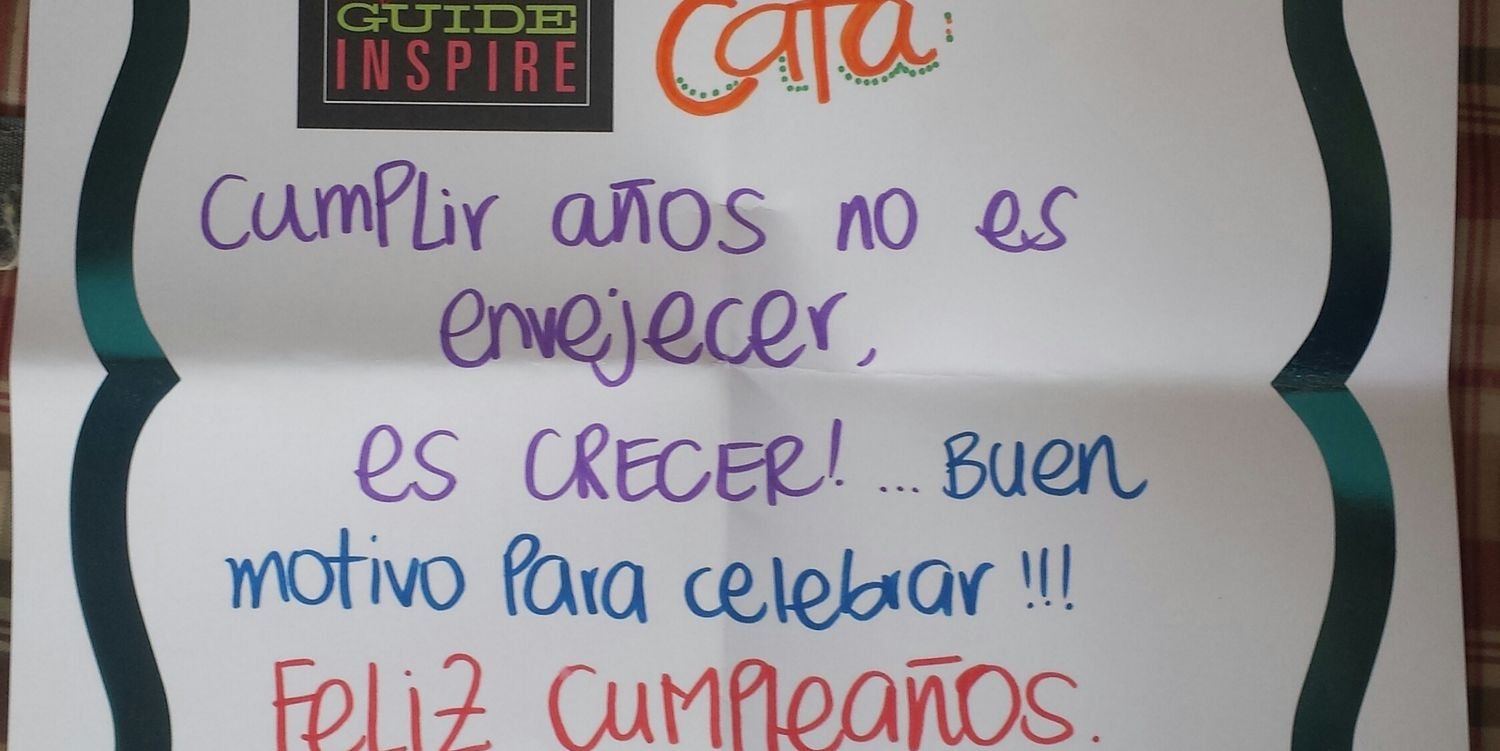 GUIDE
INSPIRE
Cata:
Cumplir años no es
envejecer,
es CRECER! ... Buen
motivo Para celebrar !!!
Feliz Cumpleaños.